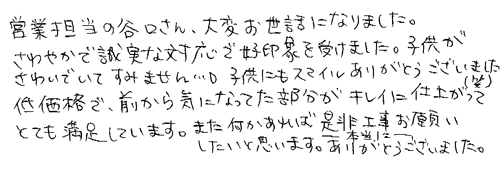 営業担当の谷口さん、大変お世話になりました。
さわやかで誠実な対応で好印象を受けました。子供が
さわいでいてすみません…。子供にもスマイルありがとうございました(笑)
低価格で、前から気になってた部分がキレイに仕上がって
とても満足しています。また何かあれば是非工事お願い
したいと思います。本当にありがとうございました。